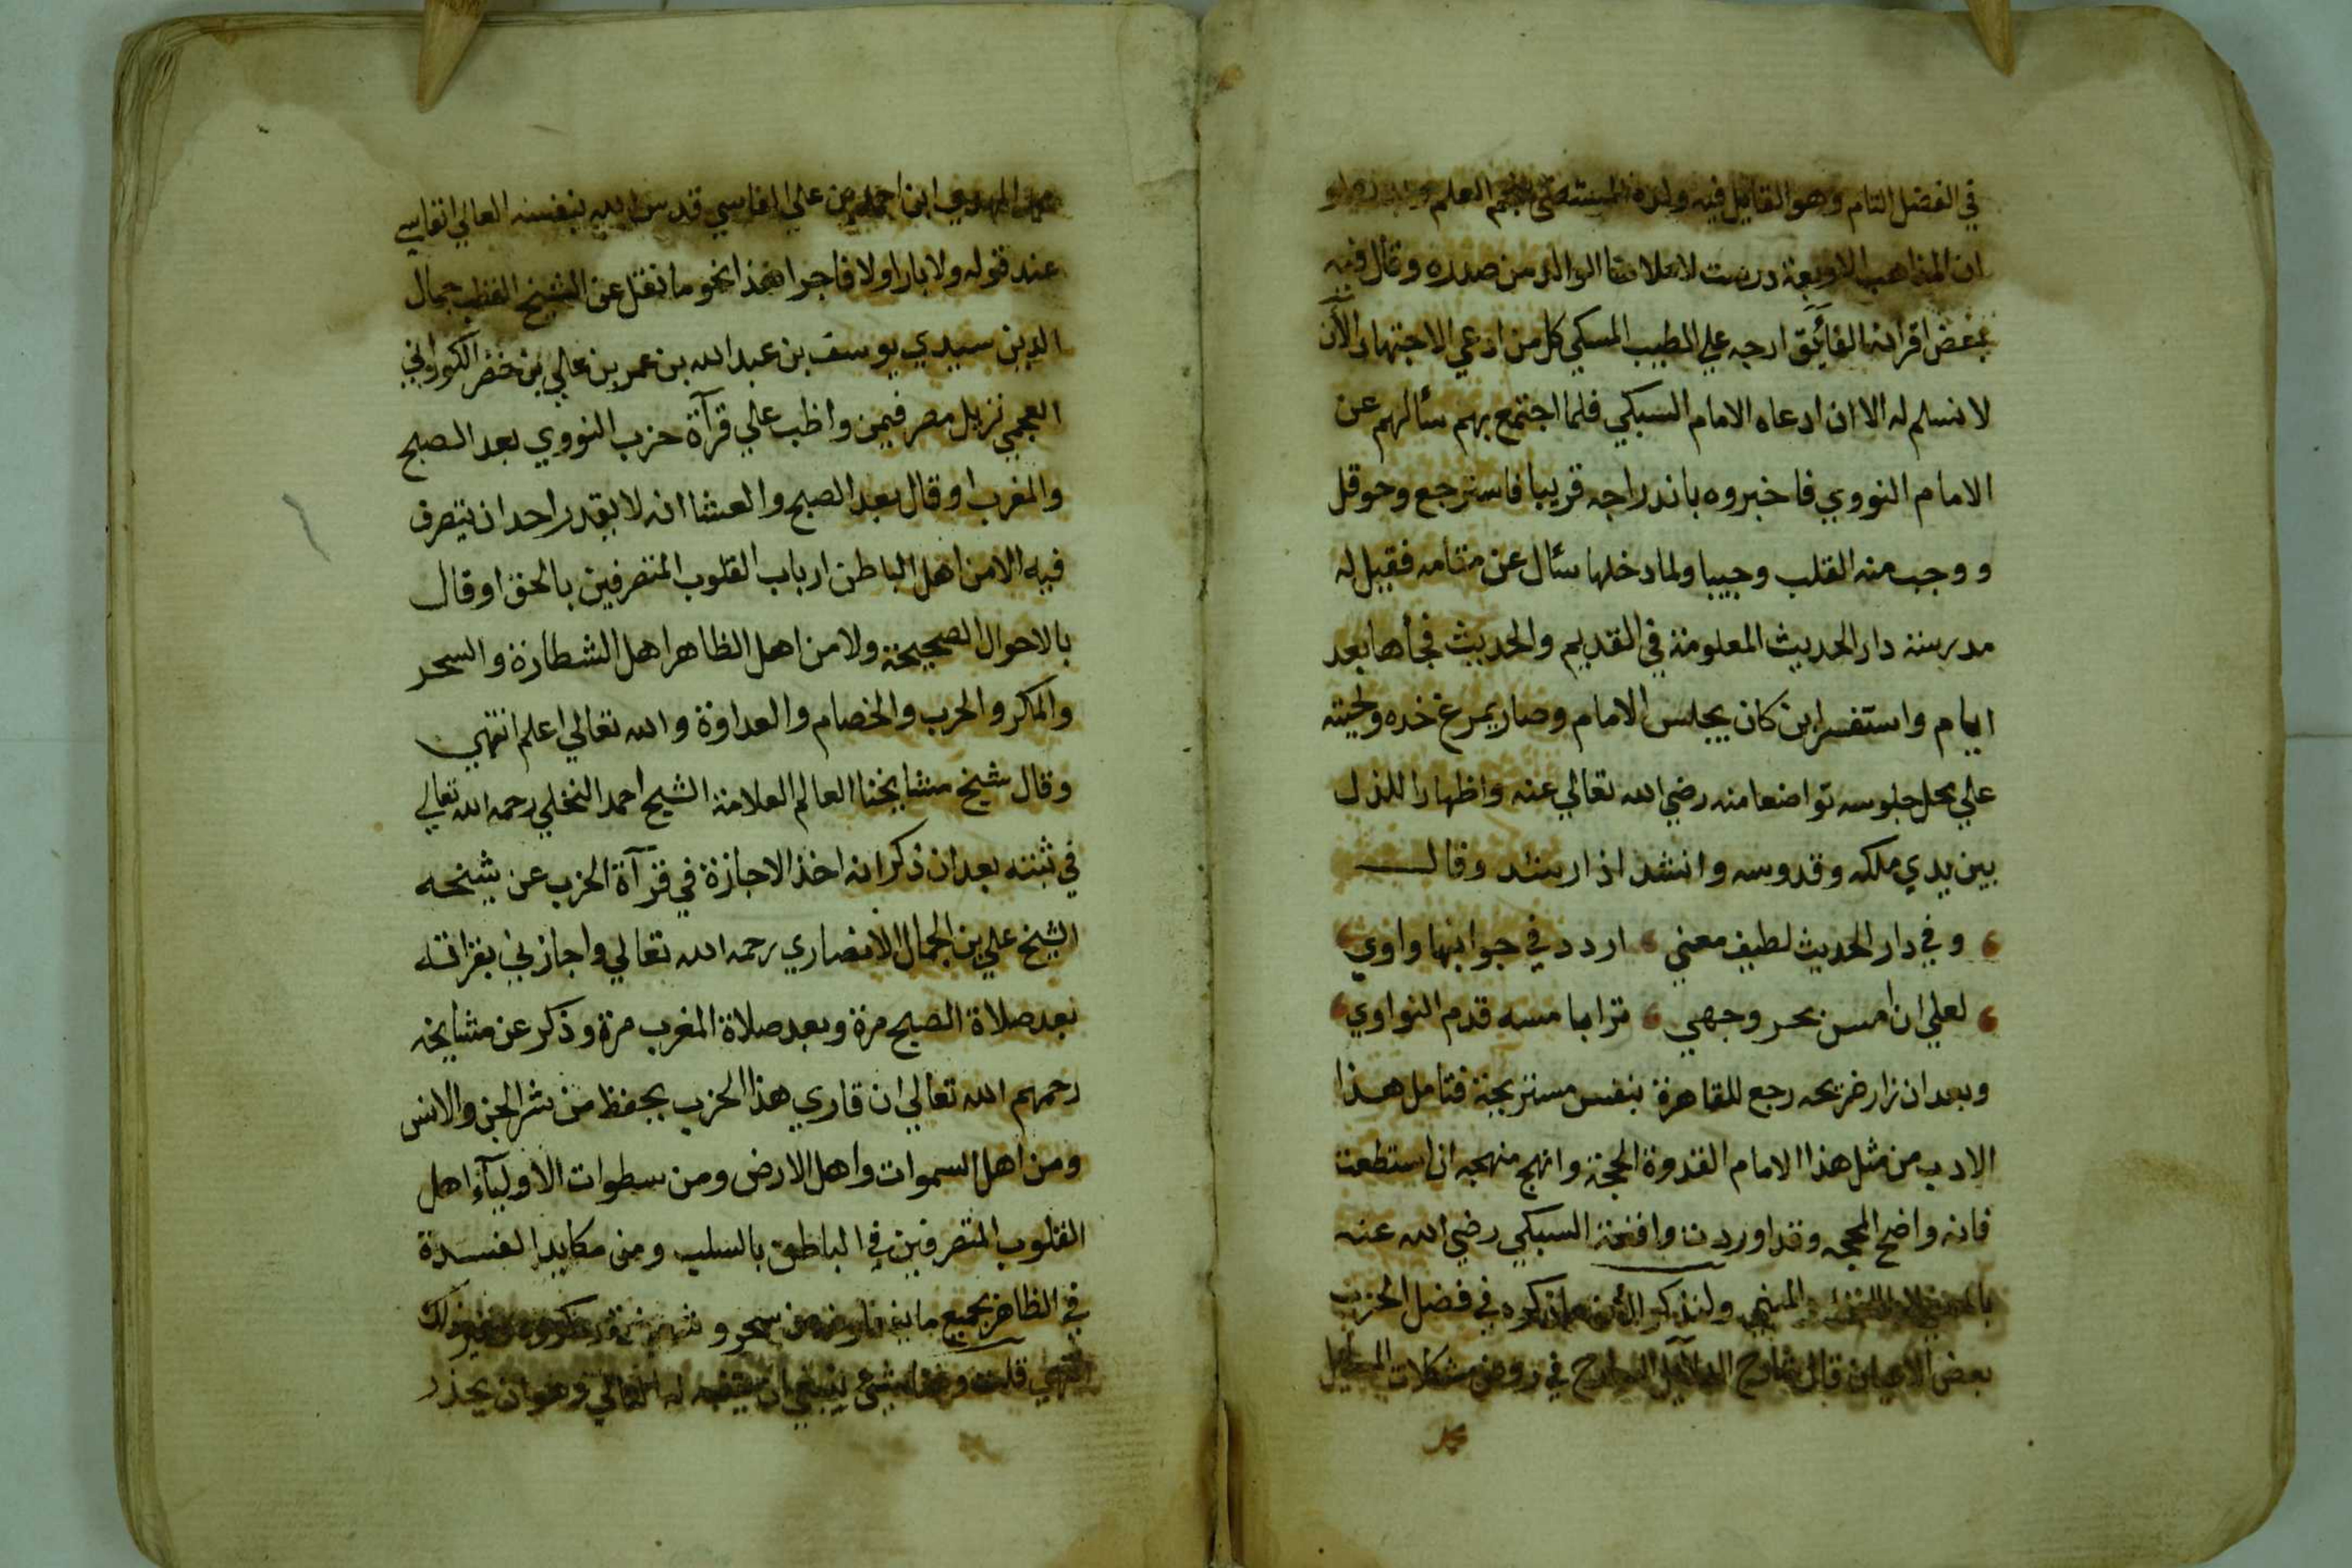 في الفضل التام وهو القايل فيه ولده العلم
ان المذاهب الاربعة درست لاملانا الوالد من صدره وقال فيه
بعض اقرانه الفائق ارجه علي الطيب المسكي كل من ادعي الاجتهاد الآن
لا نسلم له الا ان ادعاه الامام السبكي فلما اجتمع بهم سألهم عن
الامام النووي فاخبروه باندراجه قريبا فاسترجع وحوقل
و وجب منه القلب وجيبا ولما دخلها سأل عن مقامه فقيل له
مدرسته دار الحديث المعلومة في القديم والحديث فجأها بعد
ايام واستفسر اين كان يجلس الامام وصار يمرغ خده ولحيته
علي محل جلوسه تواضعا منه رضي الله تعالي عنه واظهارا للذل
بين يدي ملكه وقدوسه وانشد اذ ارشد وقال
وفي دار الحديث لطيف معني اردد في جوانبها واوي
لعلي ان امس بحر وجهي ترابا مسه قدم النواوي
وبعد ان زار ضريحه رجع للقاهرة بنفس مستربحة فتامل هذا
الادب من مثل هذا الامام القدوة الحجة وانهج منهجه ان استطعت
فانه واضح المحجه وقد اوردت واقعة السبكي رضي الله عنه
ولنذكر الآن ما ذكره في فضل الحزب
بعض الاعيان قال شارح الدلآيل في روض مشكلات
محمد
محمد المهدي ابن احمد بن علي الفاسي قدس الله بنفسه العالي انفاسي
عند قوله ولا بارا ولا فاجرا هذا نحو ما نقل عن الشيخ القطب جمال
الدين سيدي يوسف بن عبد الله بن عمر بن علي بن خضر الكوراني
العجمي نزيل مصر فيمن واظب علي قرآة حزب النووي بعد الصبح
والمغرب او قال بعد الصبح والعشا انه لا يقدر احد ان يتصرف
فيه الا من اهل الباطن ارباب القلوب المتصرفين بالحق او قال
بالاحوال الصحيحة ولا من اهل الظاهر اهل الشطارة والسحر
والمكر والحرب والخصام والعداوة والله تعالي اعلم انتهي
وقال شيخ مشايخنا العالم العلامة الشيخ احمد النخلي رحمه الله تعالي
في ثبته بعد ان ذكر انه اخذ الاجازة في قرآة الحزب عن شيخه
الشيخ علي بن الجمال الانصاري رحمه الله تعالي واجازني بقراته
بعد صلاة الصبح مرة وبعد صلاة المغرب مرة وذكر عن مشايخه
رحمهم الله تعالي ان قاري هذا الحزب يحفظ من شر الجن والانس
ومن اهل السموات واهل الارض ومن سطوات الاوليآء اهل
القلوب المتصرفين في الباطن بالسلب ومن مكايد الفسدة
في الظاهر بجميع ما من سحر و وغير ذلك
انتهي قلت ينبغي ان يتنبه له القاري وهو ان يحذر